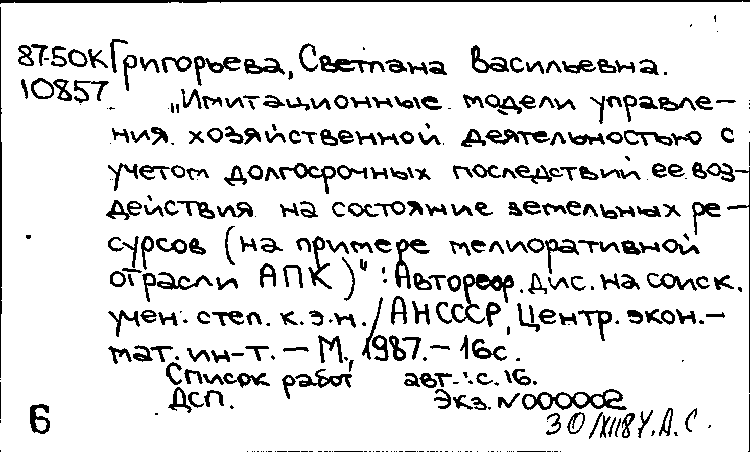 87-50К Григорьева, Светлана Васильевна.
10857
„Имитационные модели управле-
ния хозяйственной деятельностью с
учетом долгосрочных последствий ее воз-
действия на состояние земельных ре-
сурсов (на примере мелиоративной
отрасли АПК)" : Автореф. дис. на соиск.
учен. степ. к.э.н. / АН СССР, Центр. экон.-
мат. ин-т. — М., 1987. — 16с.
Список работ авт.: с. 16.
ДСП. Экз. N000002
6 30/XII 87. А.С.